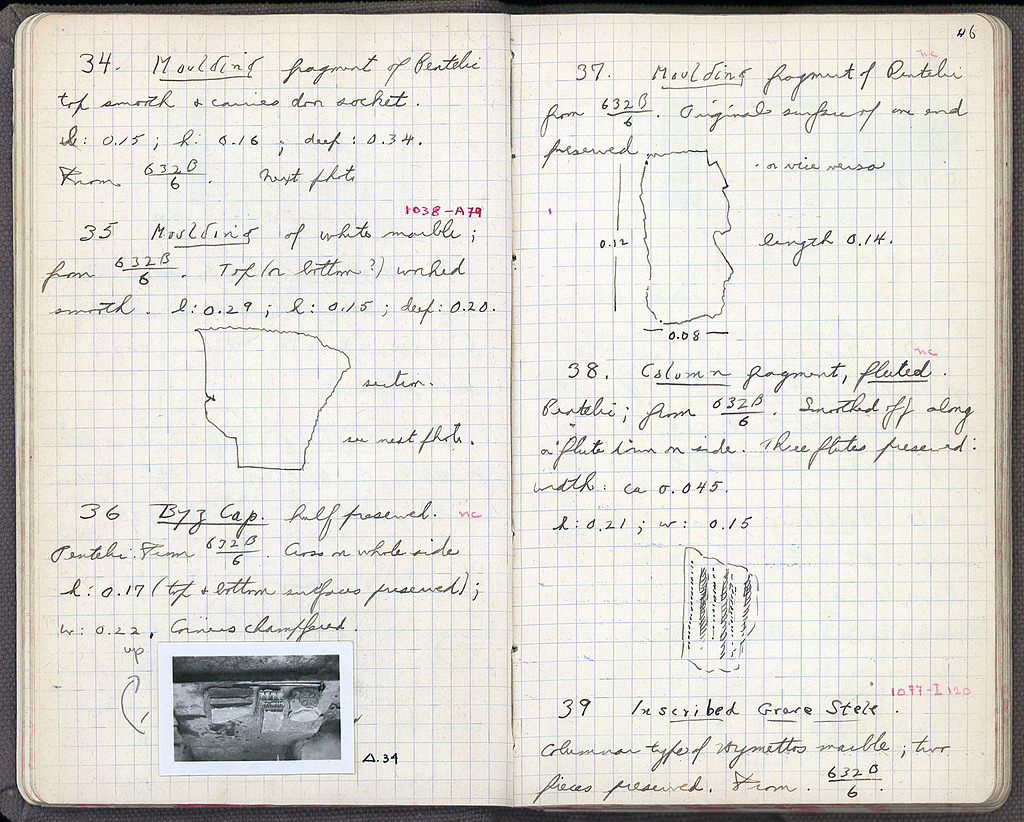 34. Moulding fragment of Pentelic
top smooth & carries don socket.
l: 0.15 ; h: 0.16 ; deep: 0.34.
From 632B/6. Next photo
1038-A79
35 Moulding of white marble;
from 632B/6. Top (or bottom?) worked
smooth. l: 0.29 ; h: 0.15 ; deep: 0.20.
section.
see next photo.
36 Byz Cap. half preserved. nc
Pentelic. From 632B/6. Cross on whole side
h: 0.17 (top & bottom surfaces preserved);
w: 0.22. Corners champfered.
up
A.34
46
nc
37. Moulding fragment of Pentelic
from 632B/6. Original surface of one end
preserved
or vice versa
0.12
length 0.14.
0.08
nc
38. Column fragment, fluted.
Pentelic; from 632B/6. Smoothed off along
a flute down on side. Three flutes preserved:
width: ca 0.045.
h: 0.21 ; w: 0.15
1077-I 120
39 Inscribed Grave Stele.
Columnar type of Hymettos marble; two
pieces preserved. From 632B/6.